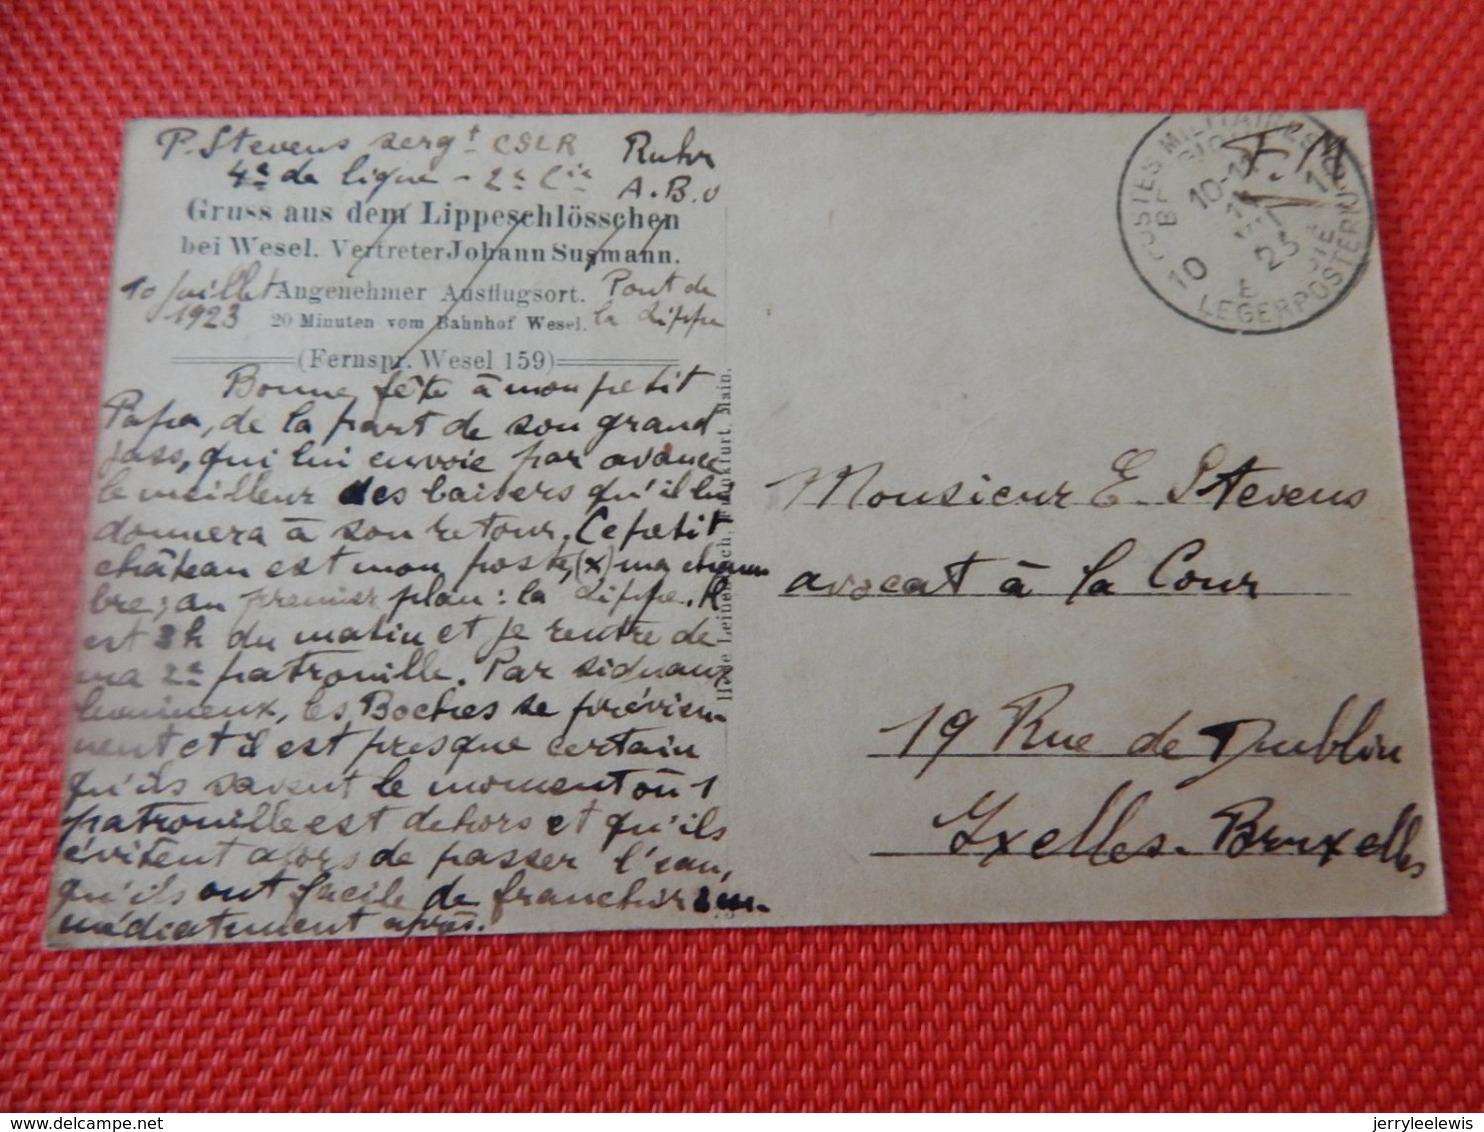 P. Stevens sergt CSLR
4e de ligne - 2e Cie
Ruhr
A.B.O
Gruss aus dem Lippeschlösschen
bei Wesel. Vertreter Johann Susmann.
10 juillet
1923
Angenehmer Ausflugsort.
20 Minuten vom Bahnhof Wesel.
Pont de
la Lippe
(Fernspr. Wesel 159)
Bonne fête à mon petit
Papa, de la part de son grand
jass, qui lui envoie par avance
le meilleur des baisers qu'il lui
donnera à son retour. Ce petit
château est mon poste, (x) ma cham
bre; au premier plan: la Lippe. Il
est 3h du matin et je rentre de
ma 2e patrouille. Par signaux
lumineux, les Boches se prévien-
nent et il est presque certain
qu'ils savent le moment où 1
patrouille est dehors et qu'ils
évitent alors de passer l'eau,
qu'ils ont facile de franchir im-
médiatement après.
Frankfurt, Main.
POSTES MILITAIRES
LEGERPOSTERIJ
10
10-11
23
F.M
Monsieur E. Stevens
avocat à la Cour
19 Rue de Dublin
Ixelles-Bruxelles
delcampe.net
jerryleelewis